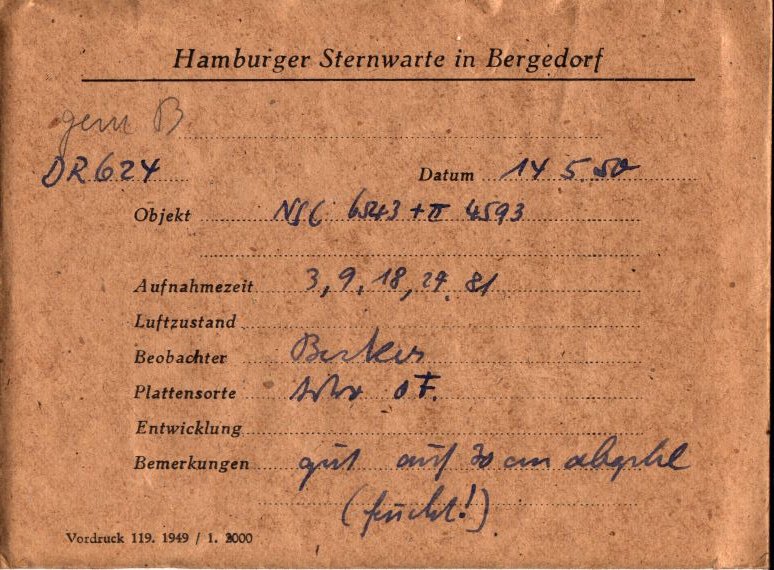 Hamburger Sternwarte in Bergedorf
gem B
DR624 Datum 14 5.50
Objekt NGC 6543 + II 4593
Aufnahmezeit 3, 9, 18, 27, 81
Luftzustand
Beobachter
Plattensorte
Entwicklung
Bemerkungen gut auf 30 cm
(feucht!)
Vordruck 119. 1949 / 1. 2000